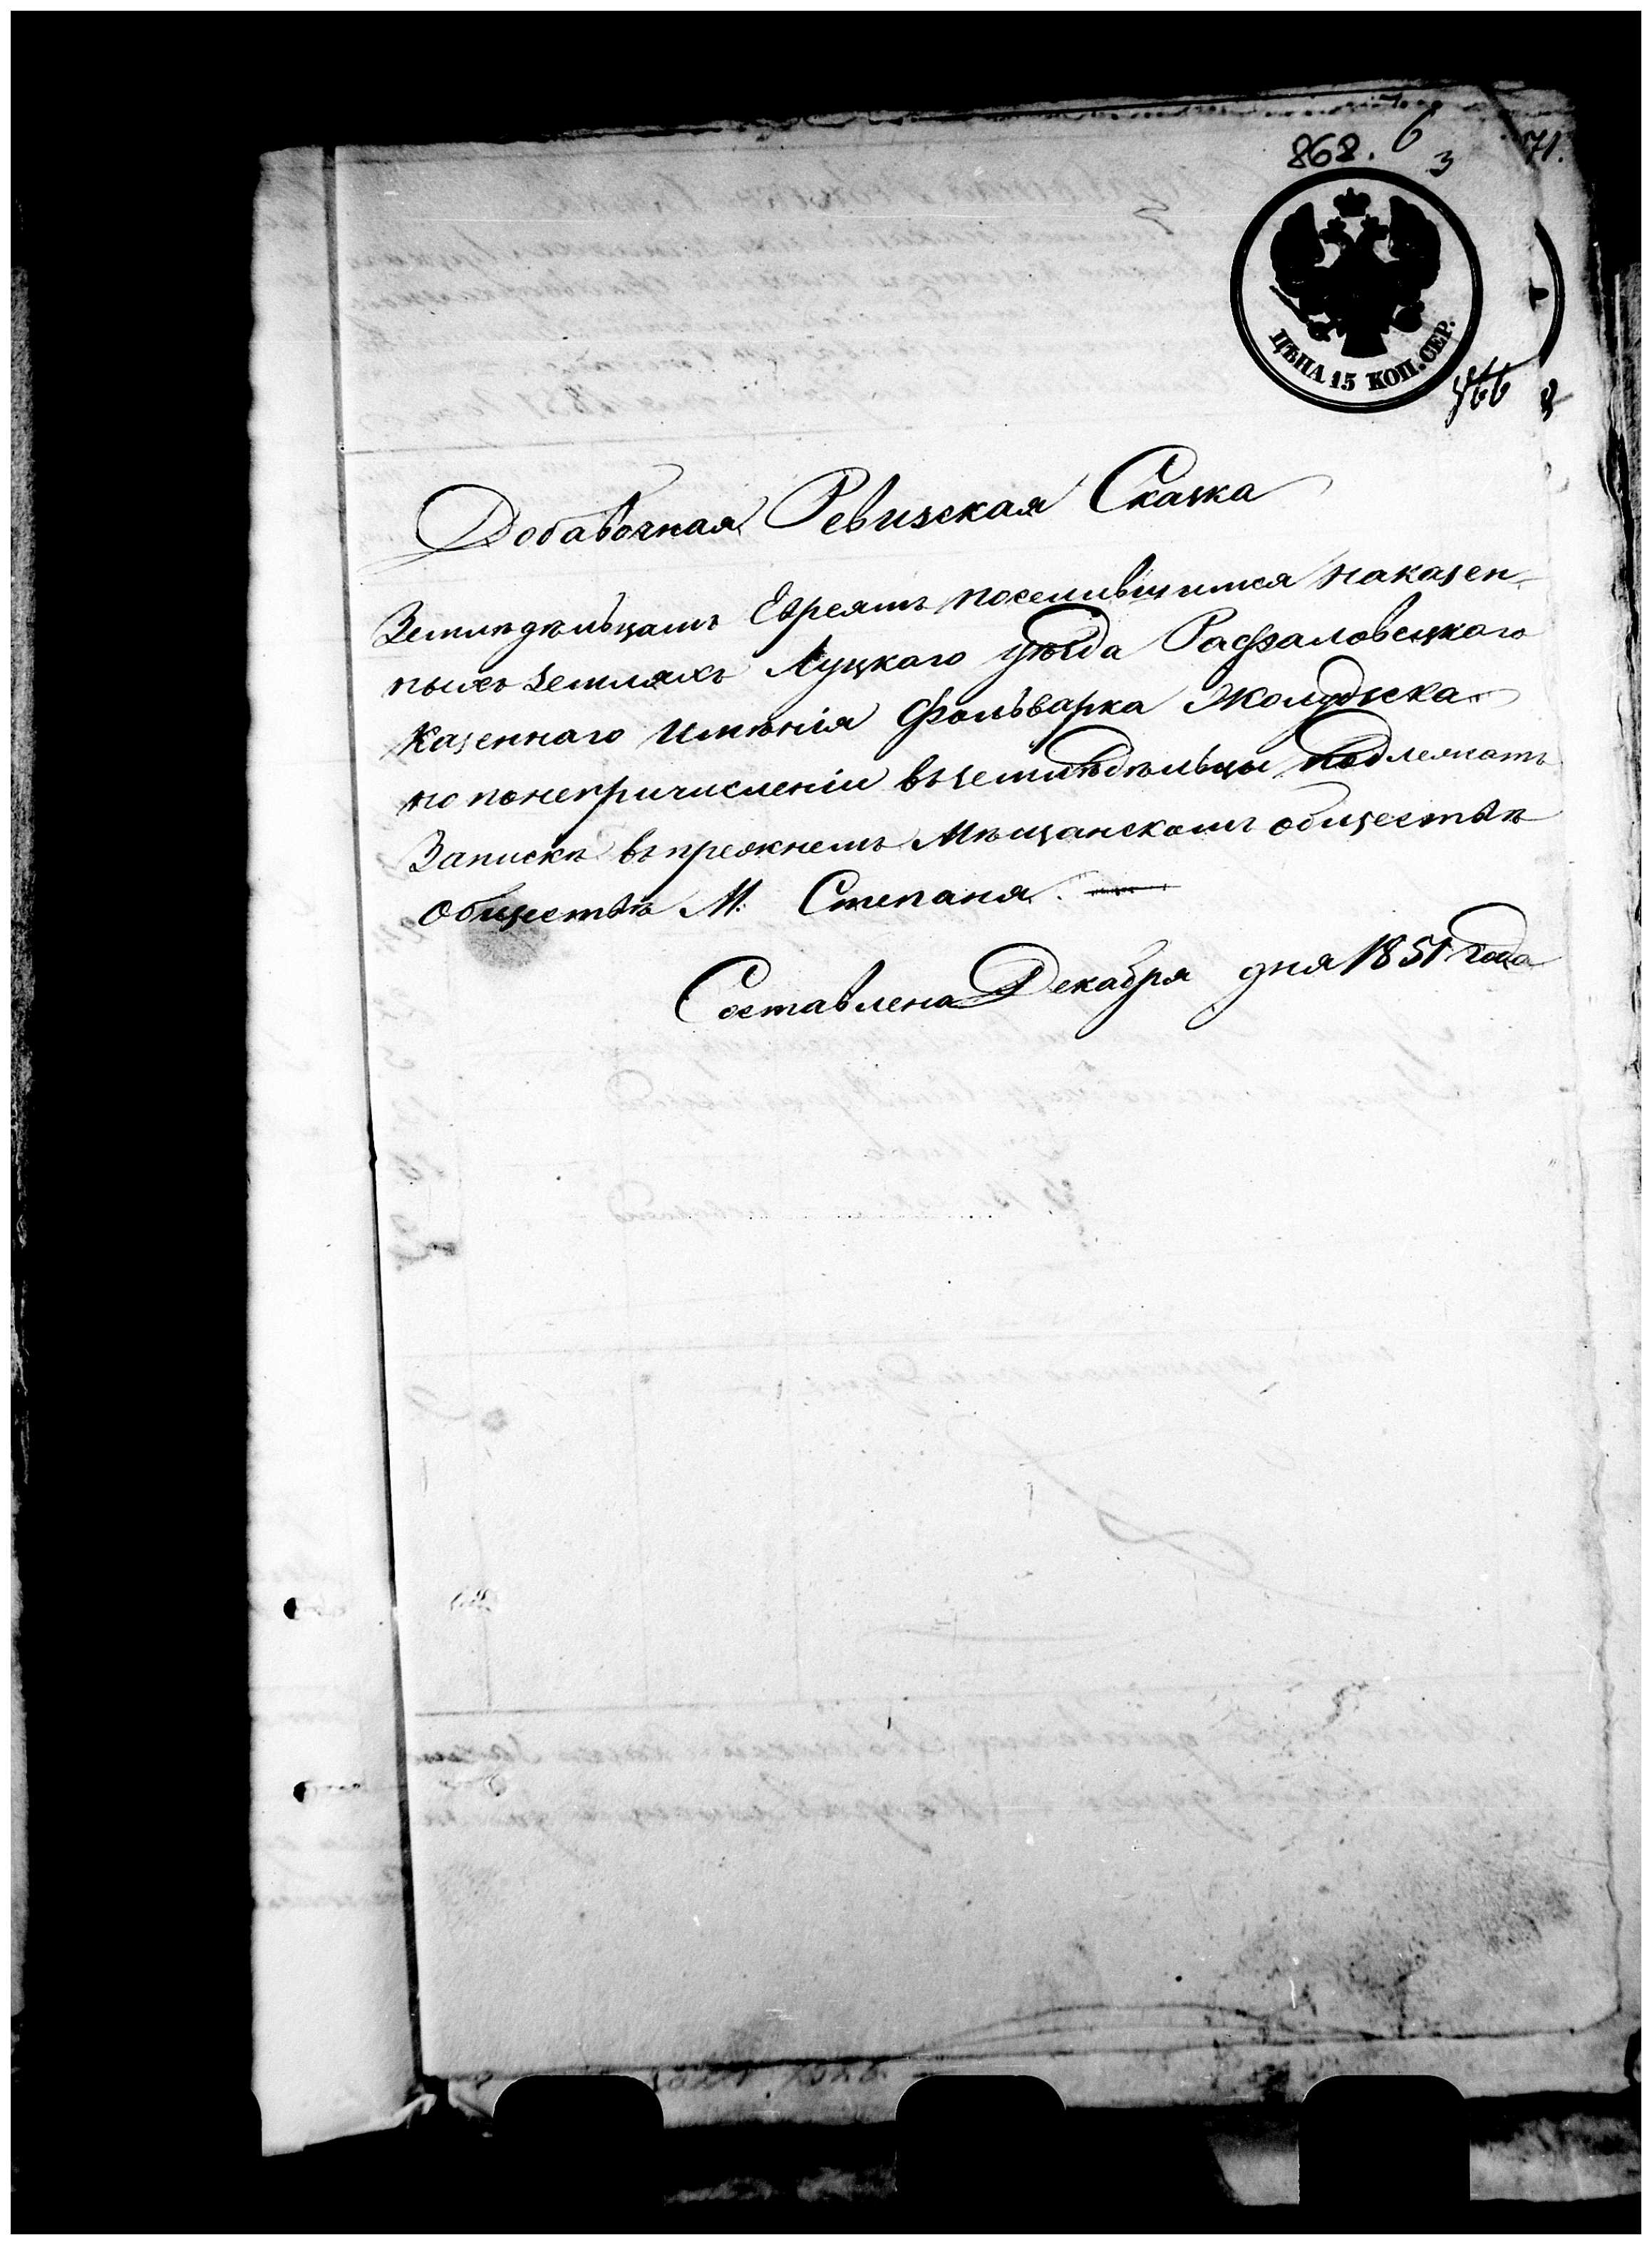 868. 6
3
71.
ЦѢНА 15 КОП. СЕР.
Добавочная Ревизская Сказка
Земледѣльцамъ Евреямъ поселившимся на казен-
ныхъ земляхъ Луцкаго уѣзда Рафаловецкаго
Казеннаго имѣнія Фольварка Жолудска
но по непричисленіи въ земледѣльцы подлежатъ
Запискѣ въ прежнемъ Мѣщанскомъ обществѣ
Обществѣ М. Степаня.
Составлена Декабря дня 1851 года